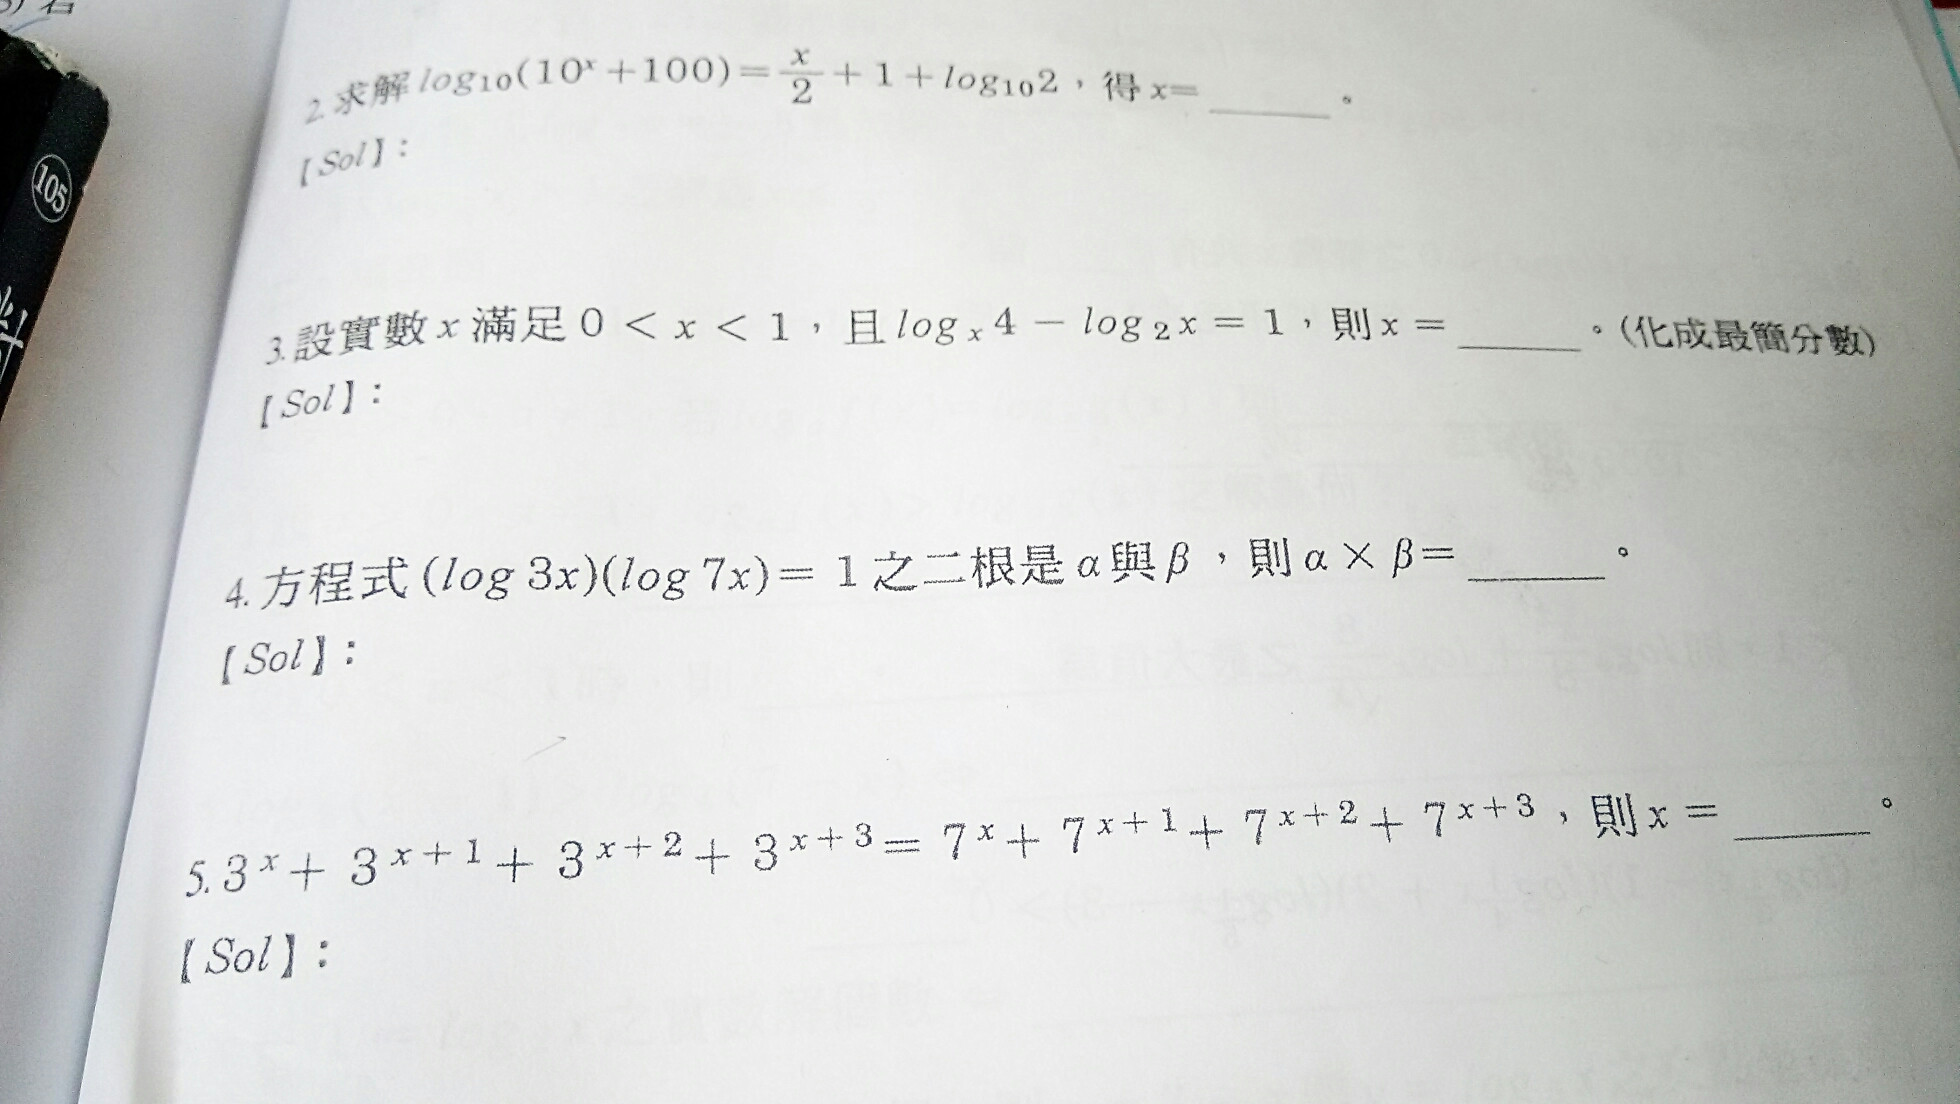 2.求解 log₁₀(10ˣ+100)=x/2+1+log₁₀2，得 x=______。
【Sol】：
3.設實數 x 滿足 0 < x < 1，且 logₓ4 − log₂x = 1，則 x = ______。(化成最簡分數)
【Sol】：
4.方程式 (log 3x)(log 7x)= 1 之二根是 α 與 β，則 α × β=______。
【Sol】：
5.3ˣ+ 3ˣ⁺¹+ 3ˣ⁺²+ 3ˣ⁺³= 7ˣ+ 7ˣ⁺¹+ 7ˣ⁺²+ 7ˣ⁺³，則 x = ______。
【Sol】：
105